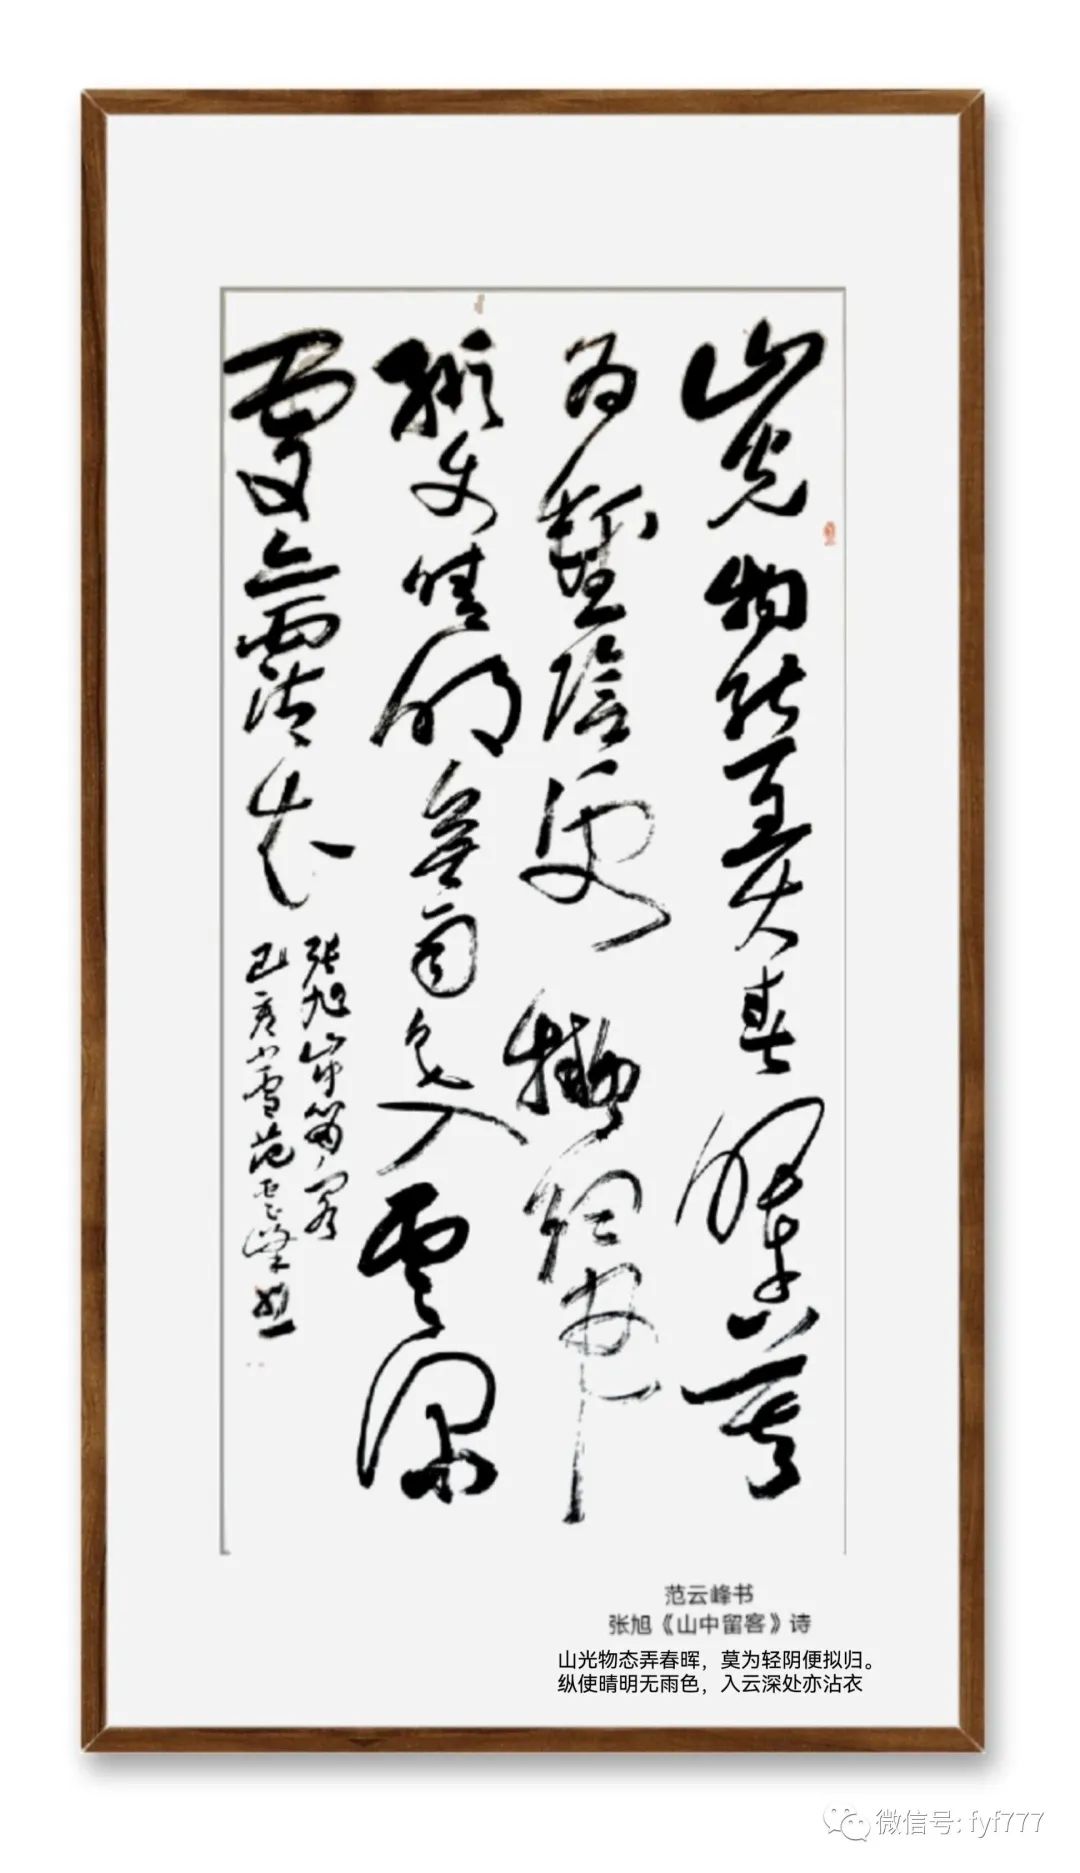 山光物態弄春暉莫
为輕陰便擬歸
縱使晴明無雨色入雲深
處亦霑衣
张旭山中留客
己亥小雪范云峰书
范云峰书
张旭《山中留客》诗
山光物态弄春晖，莫为轻阴便拟归。
纵使晴明无雨色，入云深处亦沾衣
微信号: fyf777